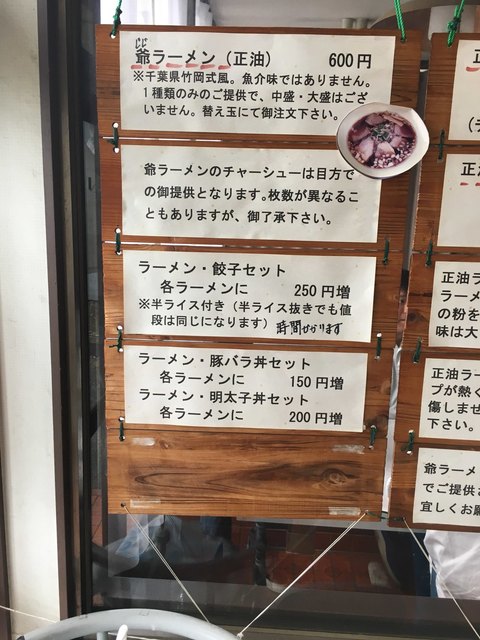 じじ
爺ラーメン（正油） 600円
※千葉県竹岡式風。魚介味ではありません。
１種類のみのご提供で、中盛・大盛はござ
いません。替え玉にて御注文下さい。
爺ラーメンのチャーシューは目方で
の御提供となります。枚数が異なるこ
ともありますが、御了承下さい。
ラーメン・餃子セット
各ラーメンに 250円増
※半ライス付き（半ライス抜きでも値
段は同じになります）時間かかります
ラーメン・豚バラ丼セット
各ラーメンに 150円増
ラーメン・明太子丼セット
各ラーメンに 200円増
正油ラ
ラーメ
の粉を
味は大
正油ラー
プが熱く
傷しませ
下さい。
爺ラーメ
でご提供さ
宜しくお願